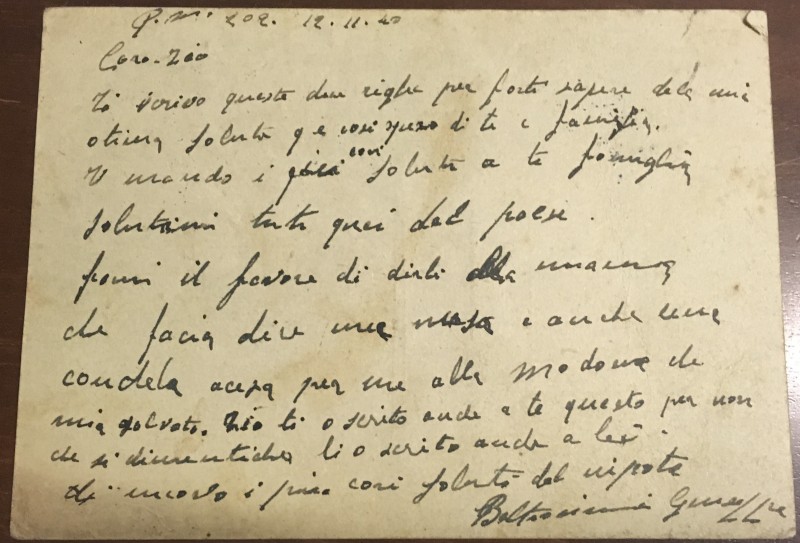 P.M. 202. 12.11.40
Caro Zio
Ti scrivo queste due righe per farti sapere dela mia
otima saluta q e cosi spero di te e famiglia.
V mando i più cari saluti a te famiglia
salutami tuti quei del paese.
fami il favore di dirli alla mamma
che facia dire una mesa e anche una
candela acesa per me alla Madona che
mia salvato. Zio ti o scrito anche a te questo per non
che si dimentichi li o scrito anche a lei
ti mando i più cari saluti dal nipote
Giuseppe